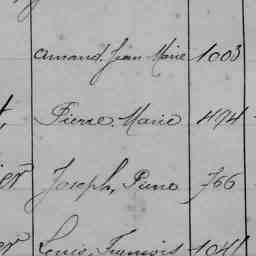 Amand, Jean Marie 1003
Pierre Marie 474
Joseph, Pierre 766
Louis, François 1041